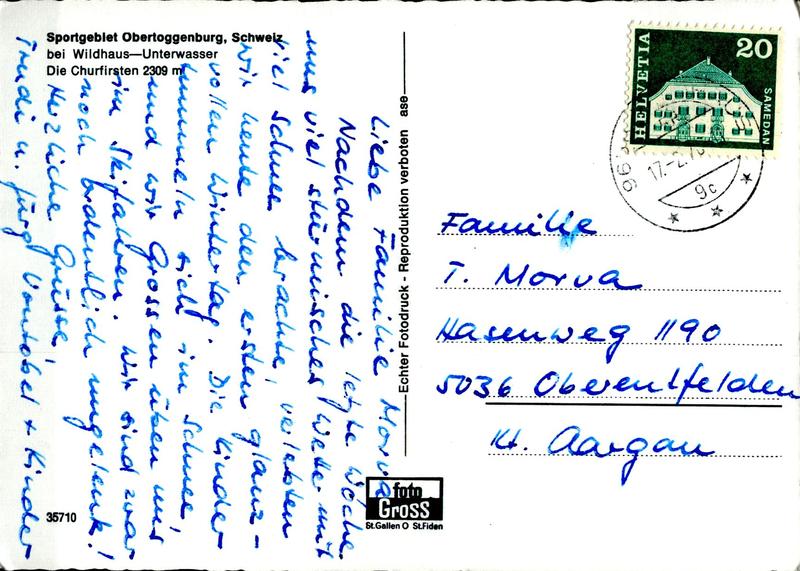 Sportgebiet Obertoggenburg, Schweiz
bei Wildhaus—Unterwasser
Die Churfirsten 2309 m
Liebe Familie Morva
Nachdem die letzte Woche
uns viel stürmisches Wetter mit
viel Schnee brachte, verlebten
wir heute den ersten glanz-
vollen Wintertag. Die Kinder
tummeln sich im Schnee,
und wir Grossen üben uns
im Skifahren. Wir sind zwar
noch ordentlich ungelenk!
Herzliche Grüsse,
Trudi u. Jürg Vontobel + Kinder
Echter Fotodruck - Reproduktion verboten ase
HELVETIA
20
SAMEDAN
17.-2.
9c
Familie
T. Morva
Hasenweg 1190
5036 Oberentfelden
Kt. Aargau
foto
GROSS
St.Gallen O St.Fiden
35710